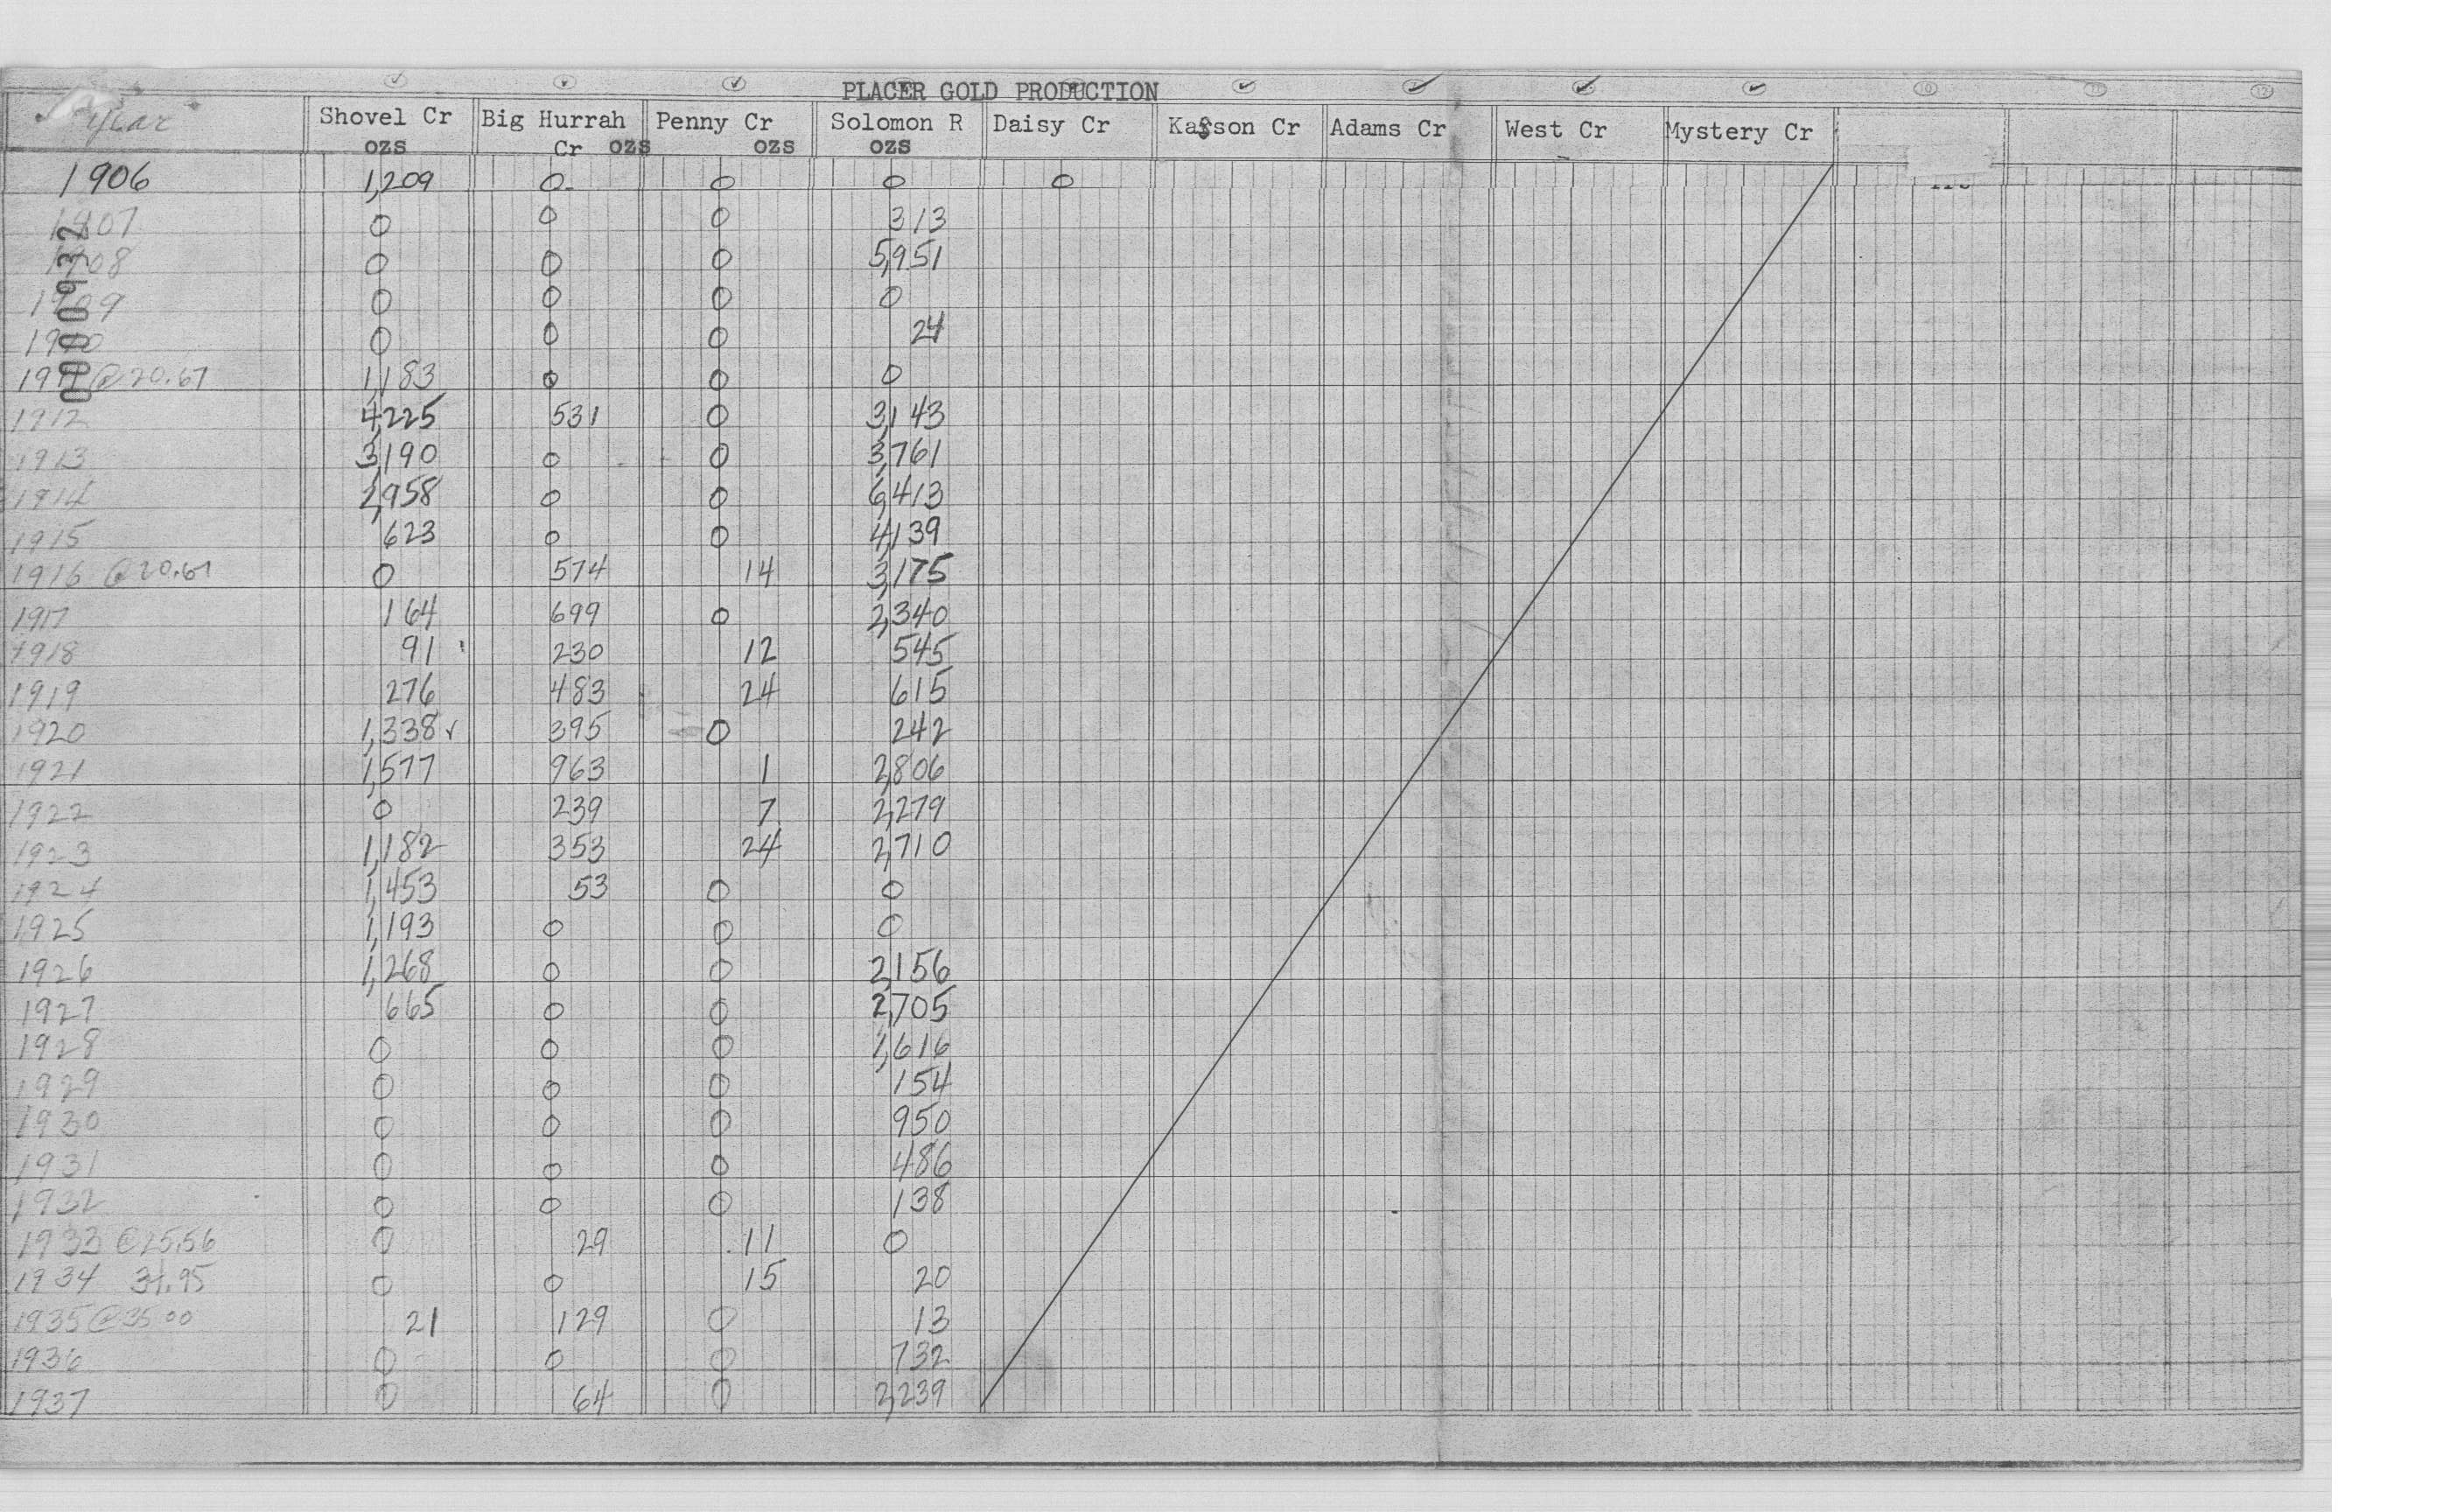 PLACER GOLD PRODUCTION
year Shovel Cr Big Hurrah Penny Cr Solomon R Daisy Cr Kasson Cr Adams Cr West Cr Mystery Cr 10 11 12
ozs Cr ozs ozs ozs
1906 1,209 0 0 0 0
1907 0 0 0 313
1908 0 0 0 5,951
1909 0 0 0 0
1910 0 0 0 24
1911 @ 20.67 1,183 0 0 0
1912 4,225 531 0 3,143
1913 3,190 0 0 3,761
1914 2,958 0 0 6,413
1915 623 0 0 4,139
1916 @ 20.67 0 574 14 3,175
1917 164 699 0 2,340
1918 91 230 12 545
1919 276 483 24 615
1920 1,338 395 0 242
1921 1,577 963 1 2,806
1922 0 239 7 2,279
1923 1,182 353 24 2,710
1924 1,453 53 0 0
1925 1,193 0 0 0
1926 1,268 0 0 2156
1927 665 0 0 2,705
1928 0 0 0 1,616
1929 0 0 0 154
1930 0 0 0 950
1931 0 0 0 486
1932 0 0 0 138
1933 @ 25.56 0 29 11 0
1934 34.95 0 0 15 20
1935 @ 35 00 21 129 0 13
1936 0 0 0 732
1937 0 64 0 2,239